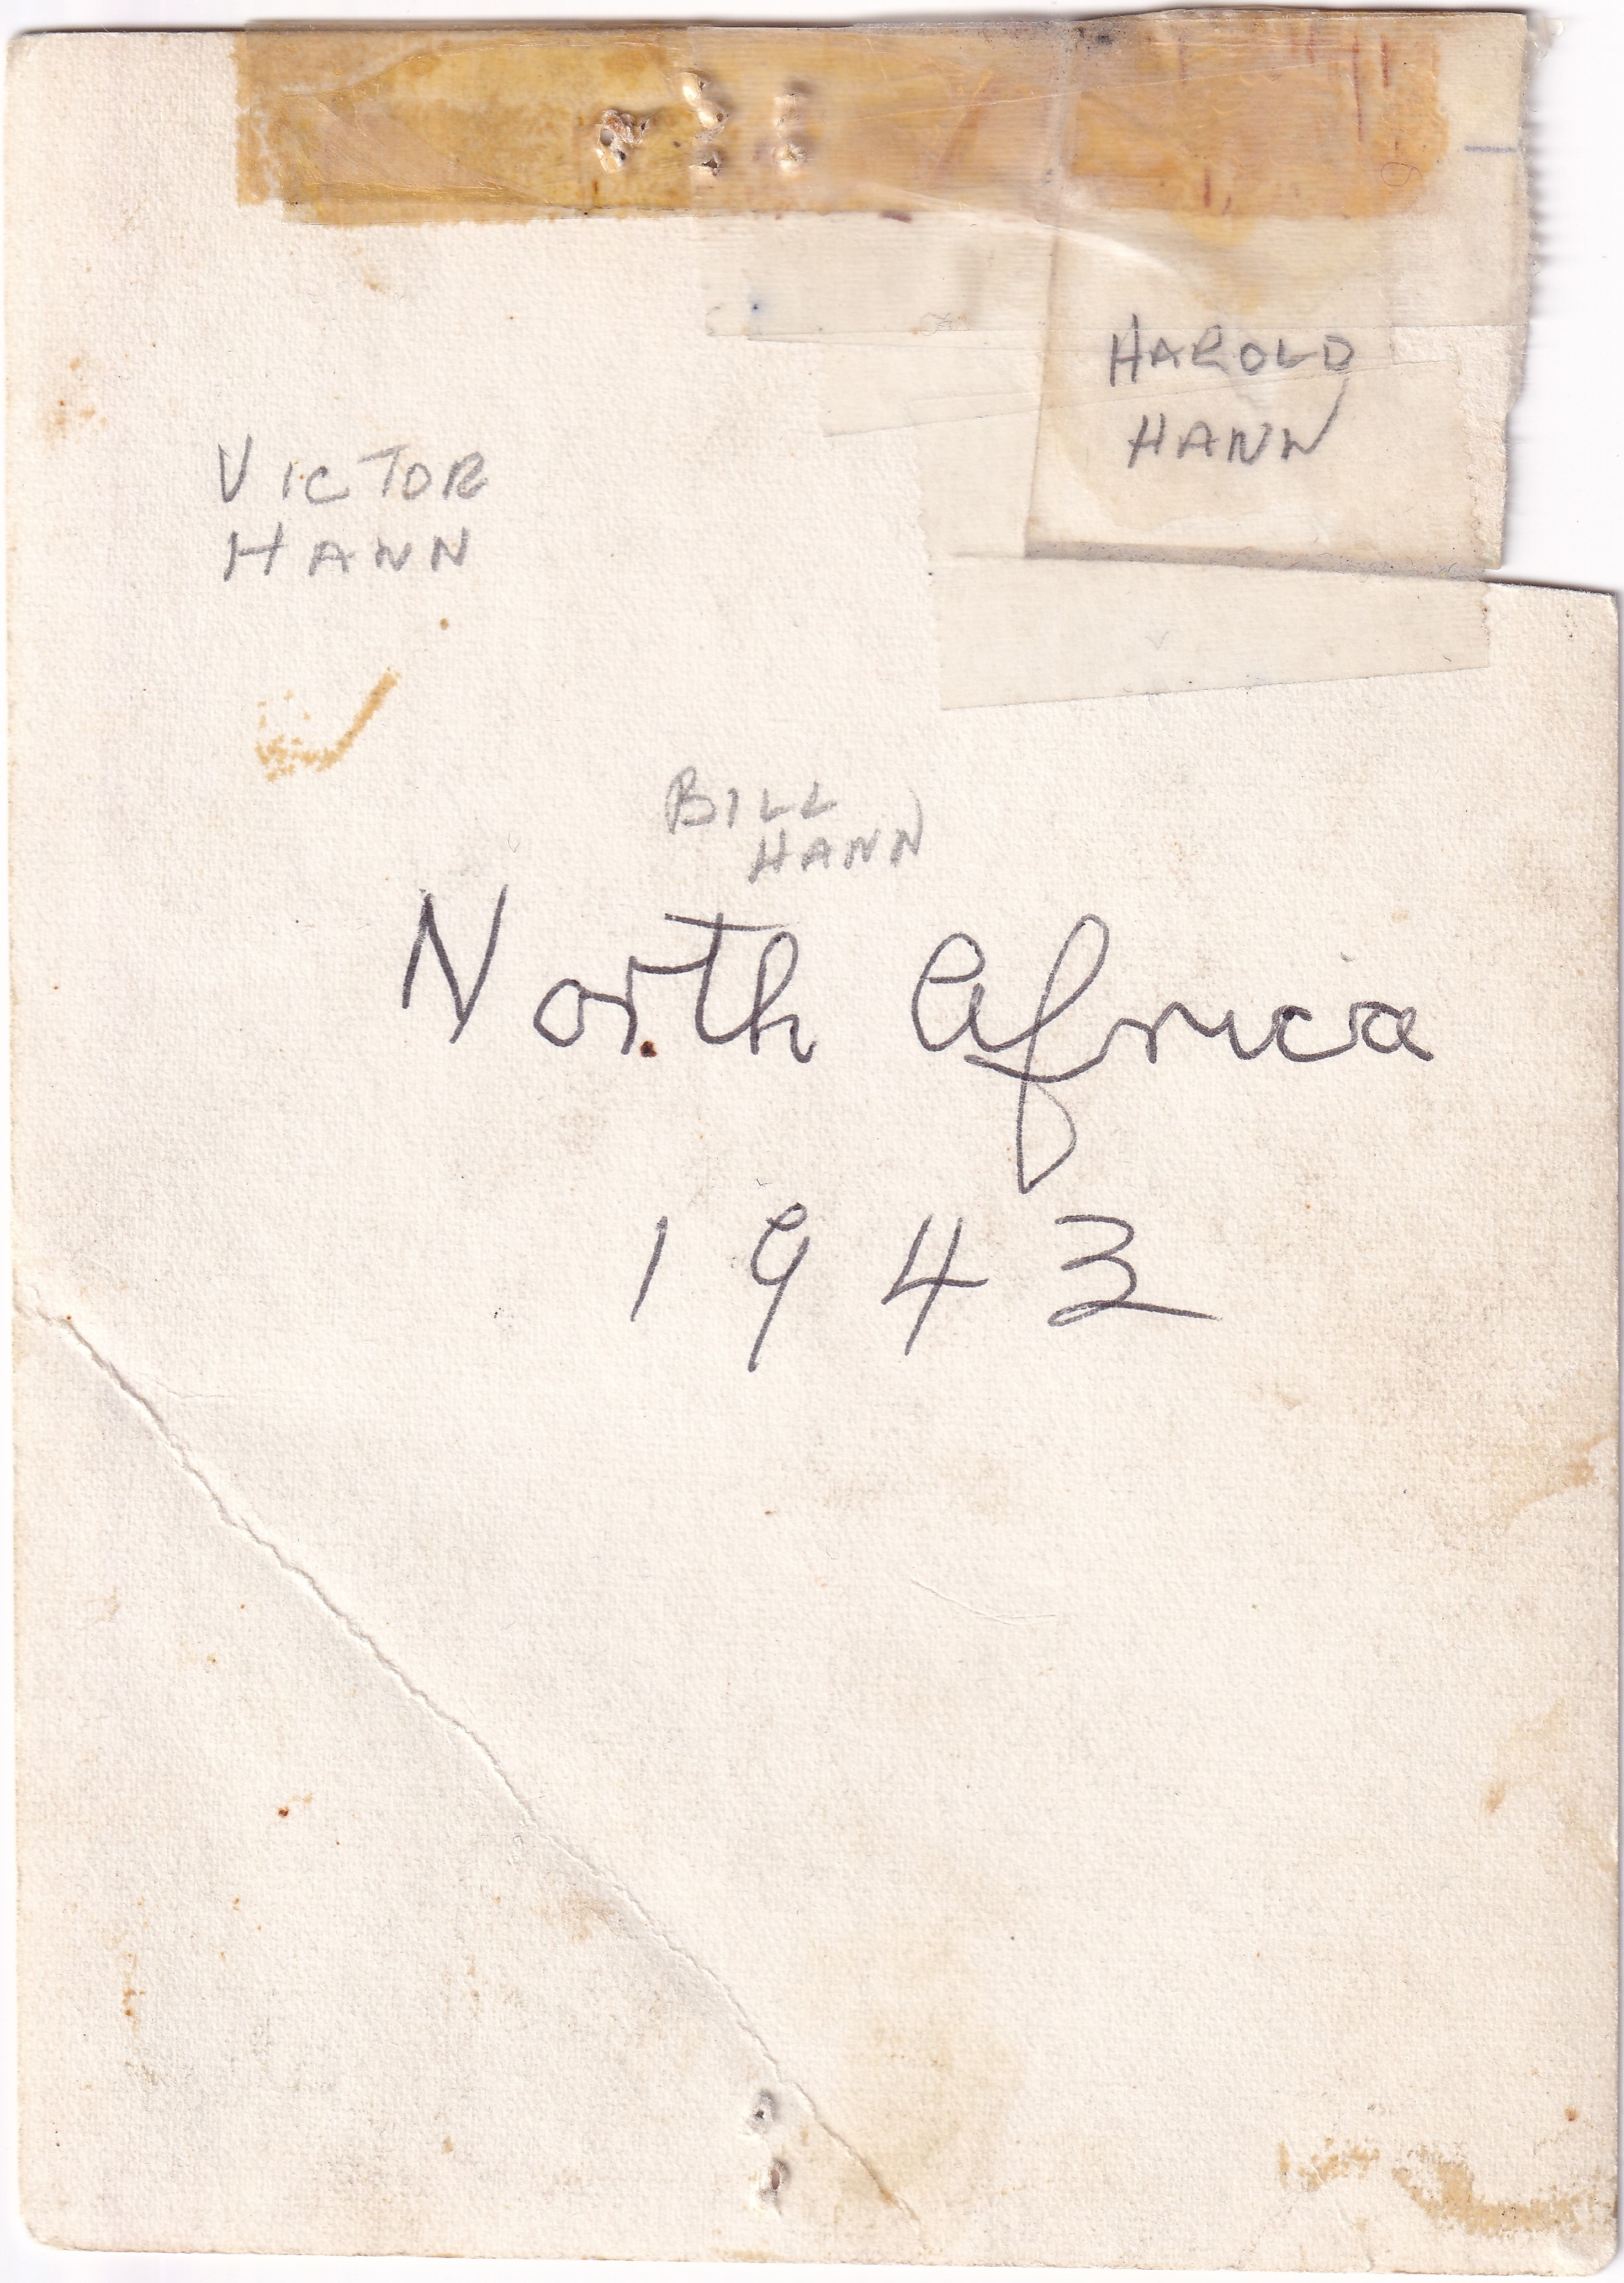 HAROLD
HANN
VICTOR
HANN
BILL
HANN
North Africa
1943